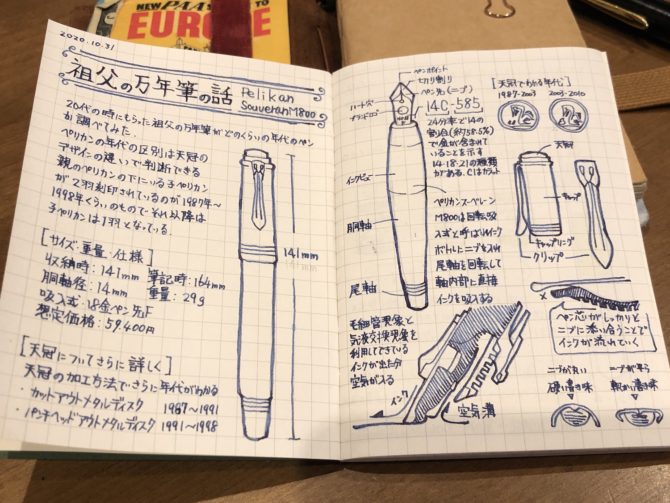 NEW PAA
TO
EUROPE
2020.10.31
祖父の万年筆の話
Pelikan
Souverän M800
20代の時にもらった祖父の万年筆がどのくらいの年代のペン
か調べてみた.
ペリカンの年代の区別は天冠の
デザインの違いで判断できる
親のペリカンの下にいる子ペリカン
が2羽刻印されているのが1987年〜
1998年くらいのもので それ以降は
子ペリカンは1羽となっている.
[サイズ・重量・仕様]
収納時:141mm 筆記時:164mm
胴軸径:14mm 重量:29g
吸入式:18金ペン先F
想定価格:59,400円
[天冠についてさらに詳しく]
天冠の加工方法でさらに年代がわかる
・カットアウトメタルディスク 1987〜1991
・パンチヘッドアウトメタルディスク 1991〜1998
141mm
ペンポイント
切り割り
ペン先(ニブ)
ハート穴
14C-585
24分率で14の
割り合(約58.5%)
で金が含まれて
いることを示す
14・18・21の種類
がある. Cはカラット
インクビュー
胴軸
尾軸
ペリカンスーベレーン
M800は回転吸
入式と呼ばれインク
ボトルにニブを入れ
尾軸を回転して
軸内部に直接
インクを吸入する
毛細管現象と
気液交換現象を
利用してできている
インクが出た分
空気が入る
インク
空気溝
[天冠でわかる年代]
1987-2003 2003-2010
天冠
キャップ
キャップリング
クリップ
ペン芯がしっかりと
ニブに添い合うことで
インクが流れていく
ニブが丸い
硬い書き味
ニブが平ら
軟かい書き味